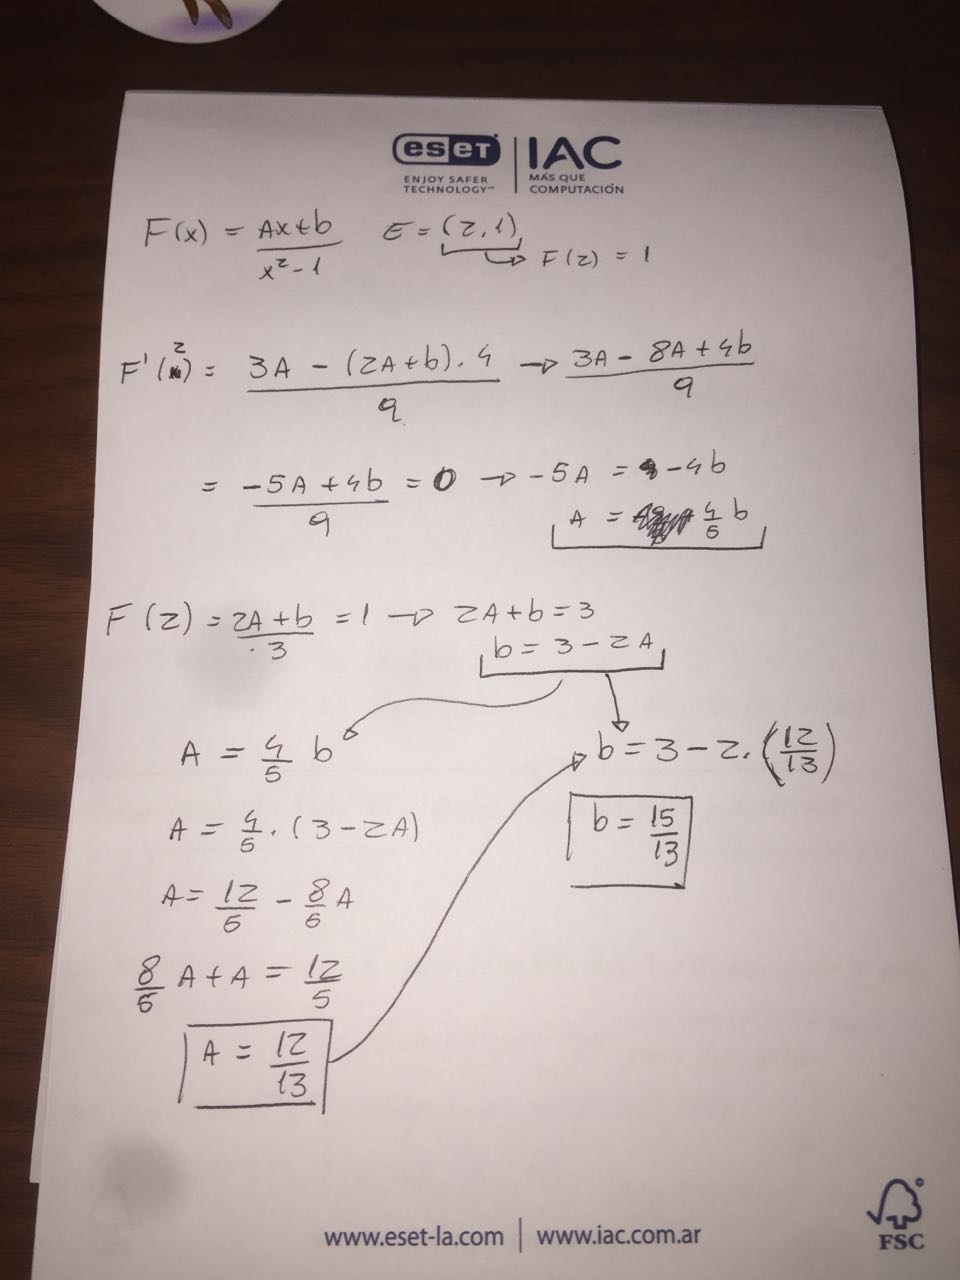 eset | IAC
ENJOY SAFER TECHNOLOGY™ MÁS QUE COMPUTACIÓN
F(x) = Ax+b / x²-1 E = (2,1) → F(2) = 1
F'(2) = 3A - (2A+b).4 / 9 → 3A - 8A+4b / 9
= -5A+4b / 9 = 0 → -5A = -4b
A = 4/5 b
F(2) = 2A+b / 3 = 1 → 2A+b=3
b = 3-2A
A = 4/5 b
b = 3-2.(12/13)
A = 4/5 . (3-2A)
b = 15/13
A = 12/5 - 8/5 A
8/5 A+A = 12/5
A = 12/13
www.eset-la.com | www.iac.com.ar
FSC